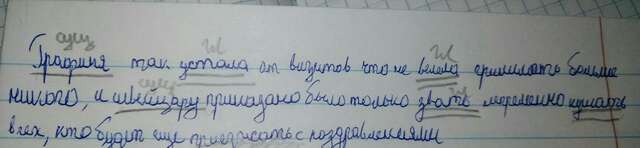 сущ гл гл
Графиня так устала от визитов что не велела принимать больше
сущ гл
никого, и швейцару приказано было только звать непременно кушать
всех, кто будит еще приезжать с поздравлениями